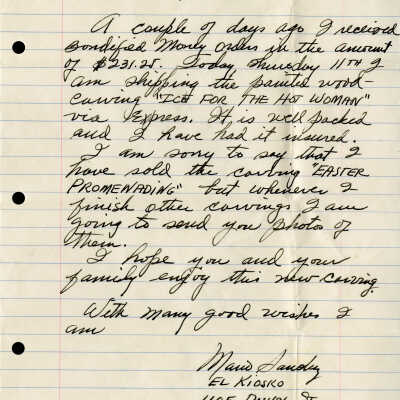 A couple of days ago I received
bondified Money orders in the amount
of $231.25. Today thursday 11TH I
am shipping the painted wood
carving "ICE FOR THE HOT WOMAN"
via Express. It is well packed
and I have had it insured.
I am sorry to say that I
have sold the carving "EASTER
PROMENADING" but whenever I
finish other carvings I am
going to send you photos of
them.
I hope you and your
family enjoy this new carving.
With many good wishes I
am
Mario Sanchez
EL KIOSKO